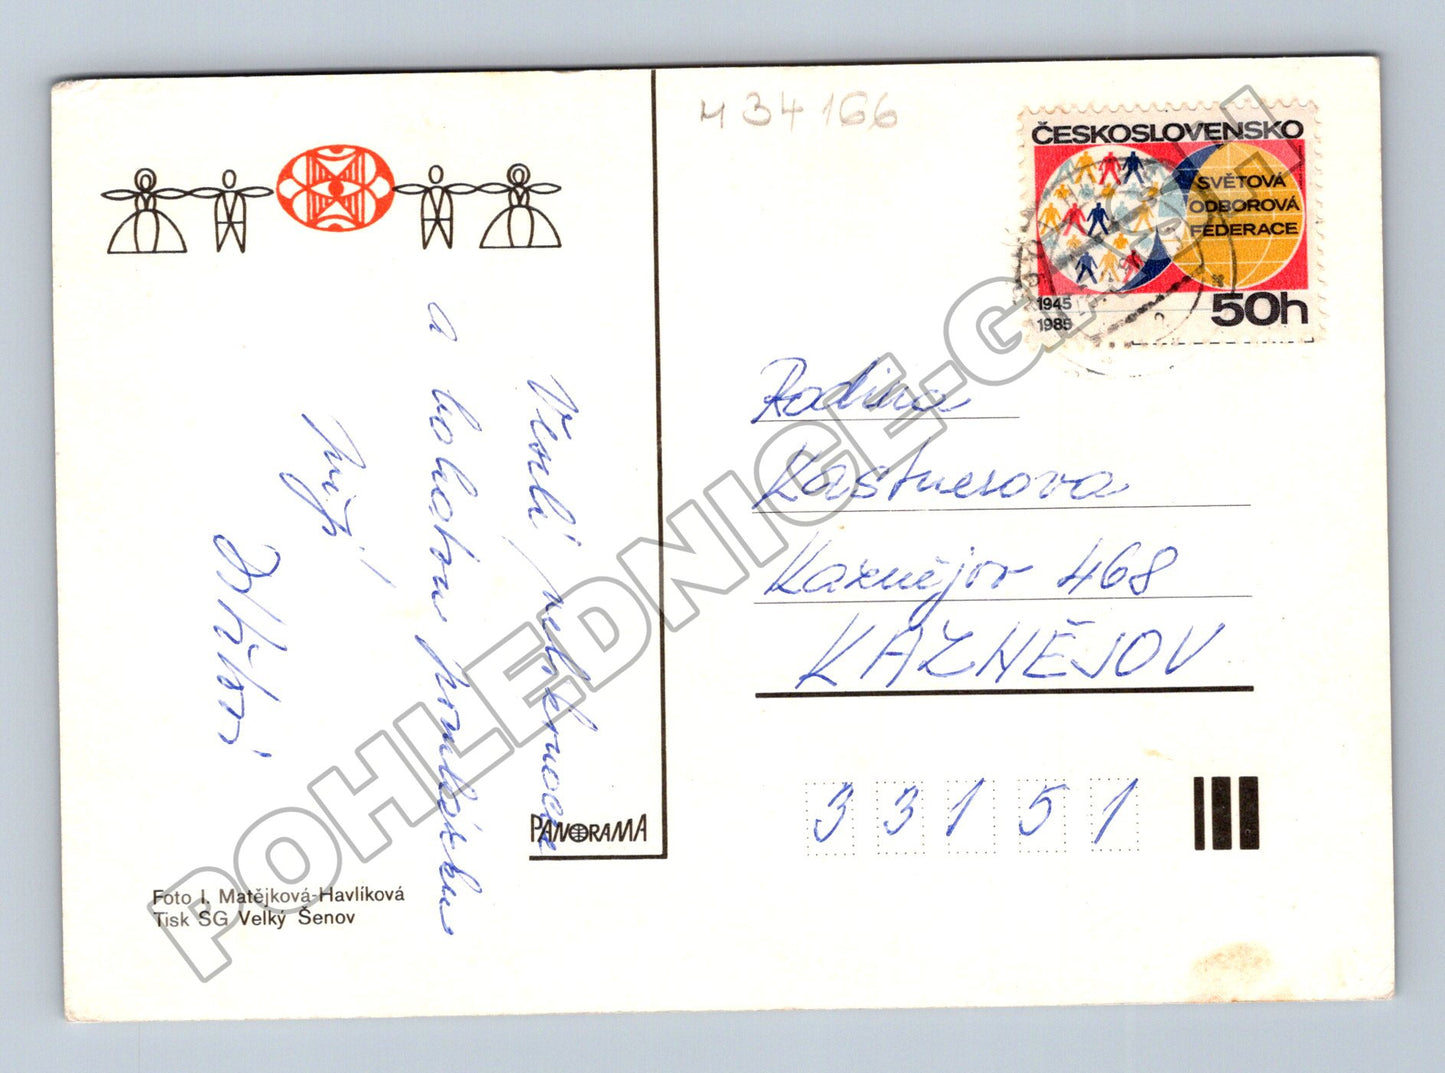 M 34 166
ČESKOSLOVENSKO
SVĚTOVÁ
ODBOROVÁ
FEDERACE
1945
1985
50h
Veselé velikonoce
a bohatou pomlázku
přejí
Rodina
Kastnerova
Kaznějov 468
KAZNĚJOV
33151
PANORAMA
Foto I. Matějková-Havlíková
Tisk SG Velký Šenov
POHLEDNICE-GALERIE